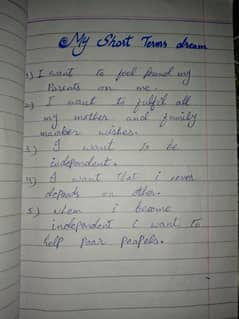 My Short Terms dream
1) I want to feel proud my
Parents on me.
2) I want to fulfil all
my mother and family
member wishes.
3) I want to be
independent.
4) I want that i never
depends on other.
5) when i become
independent i want to
help poor peopels.